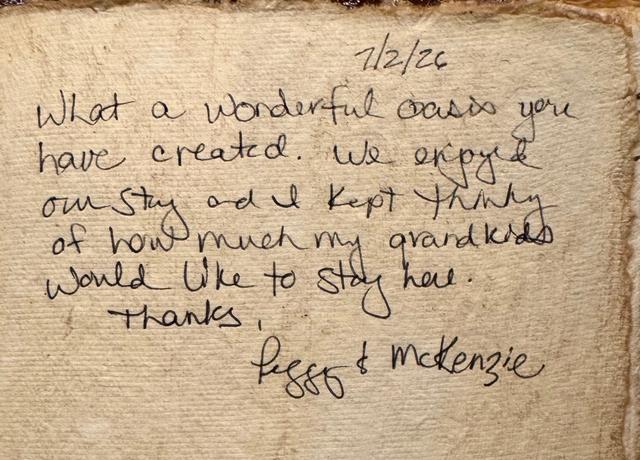 7/2/26
What a wonderful oasis you
have created. We enjoyed
our stay and I kept thinking
of how much my grandkids
would like to stay here.
Thanks,
Peggy & McKenzie